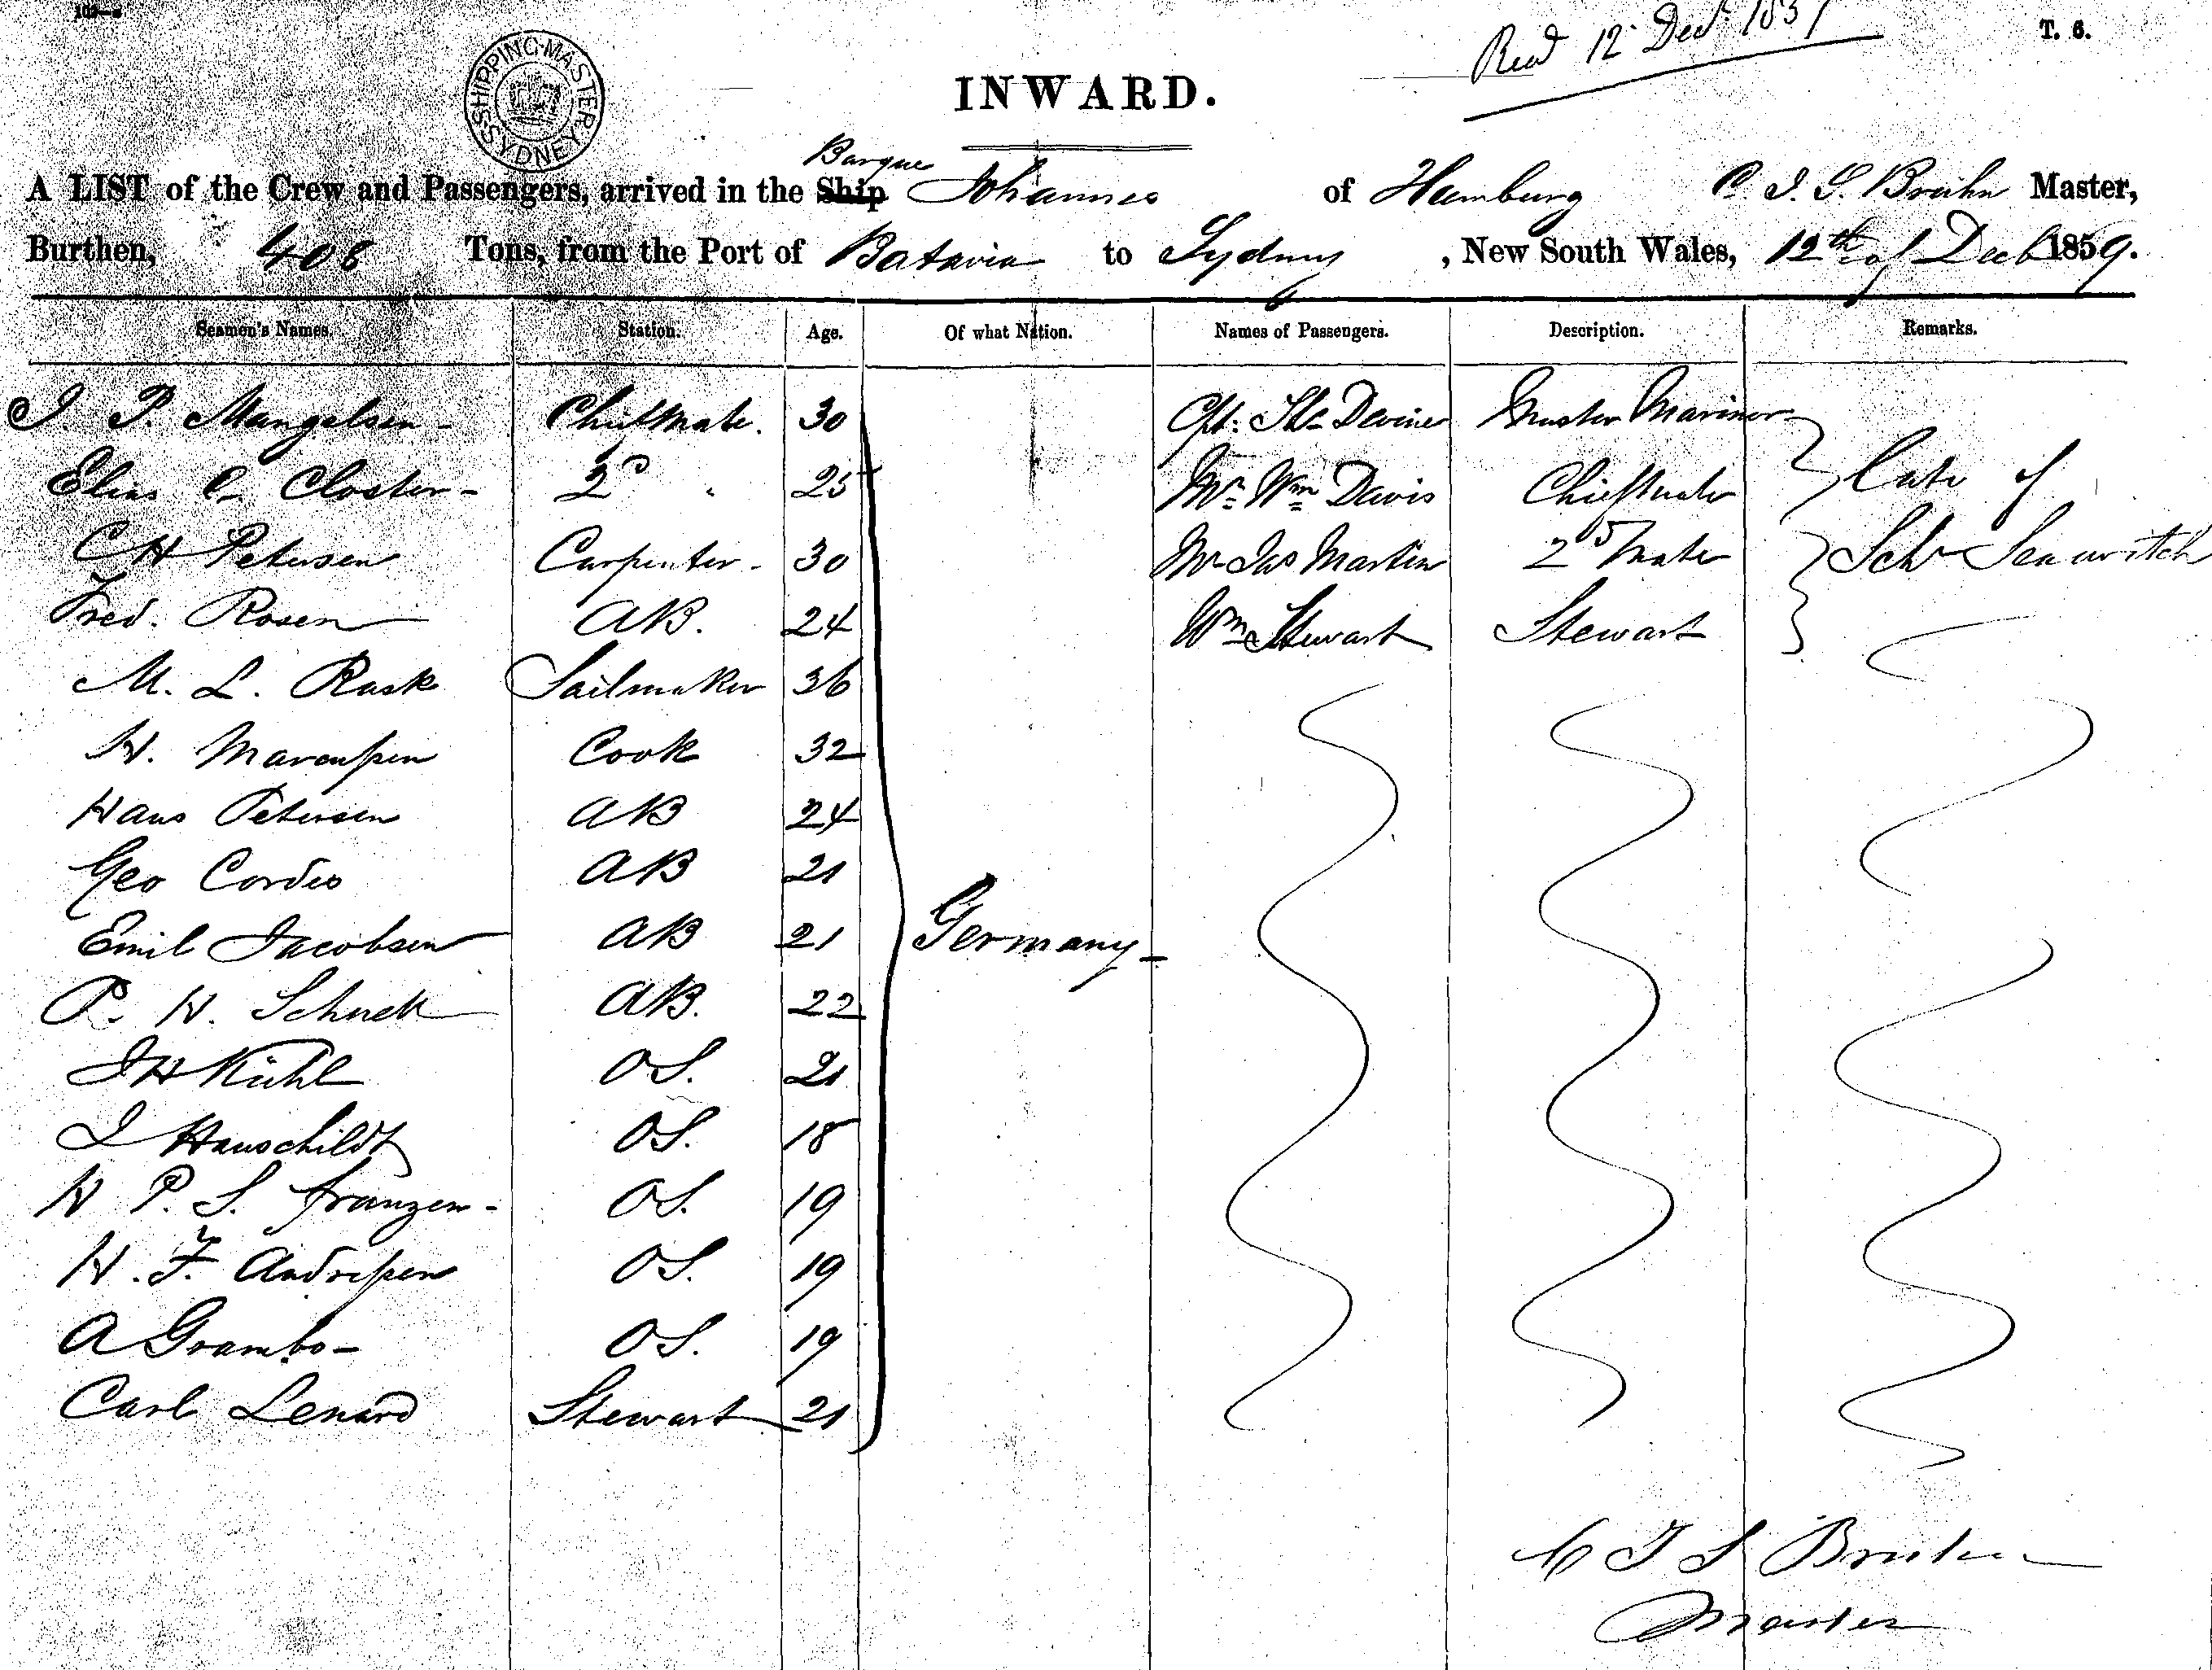 Recd 12 Decr 1859
T. 6.
SHIPPING MASTER SYDNEY
INWARD.
Barque
A LIST of the Crew and Passengers, arrived in the Ship Johannes of Hamburg C. J. S. Bruhn Master,
Burthen, 408 Tons, from the Port of Batavia to Sydney, New South Wales, 12th of Decb 1859.
Seamen's Names. Station. Age. Of what Nation. Names of Passengers. Description. Remarks.
J. P. Mangelsen - Chief Mate. 30 Cpt: Devine Master Mariner
Elias C. Closter - 2D " 25 Mr. Wm Davis Chief Mate Late of
C H Petersen Carpenter - 30 Mr Jas Martin 2D Mate Schr Seawitch
Fred. Rosen AB. 24 Wm Stewart Stewart
M. L. Rask Sailmaker 36
H. Marcussen Cook 32
Hans Petersen AB 24
Geo Cordes AB 21
Emil Jacobsen AB 21 Germany -
P. H. Schnell AB. 22
J H Kühl OS. 21
J Hauschildt OS. 18
H P. S. Franzen - OS. 19
H. F. Andressen OS. 19
A Grambo - OS. 19
Carl Lenard Stewart 21
C J S Bruhn
Master